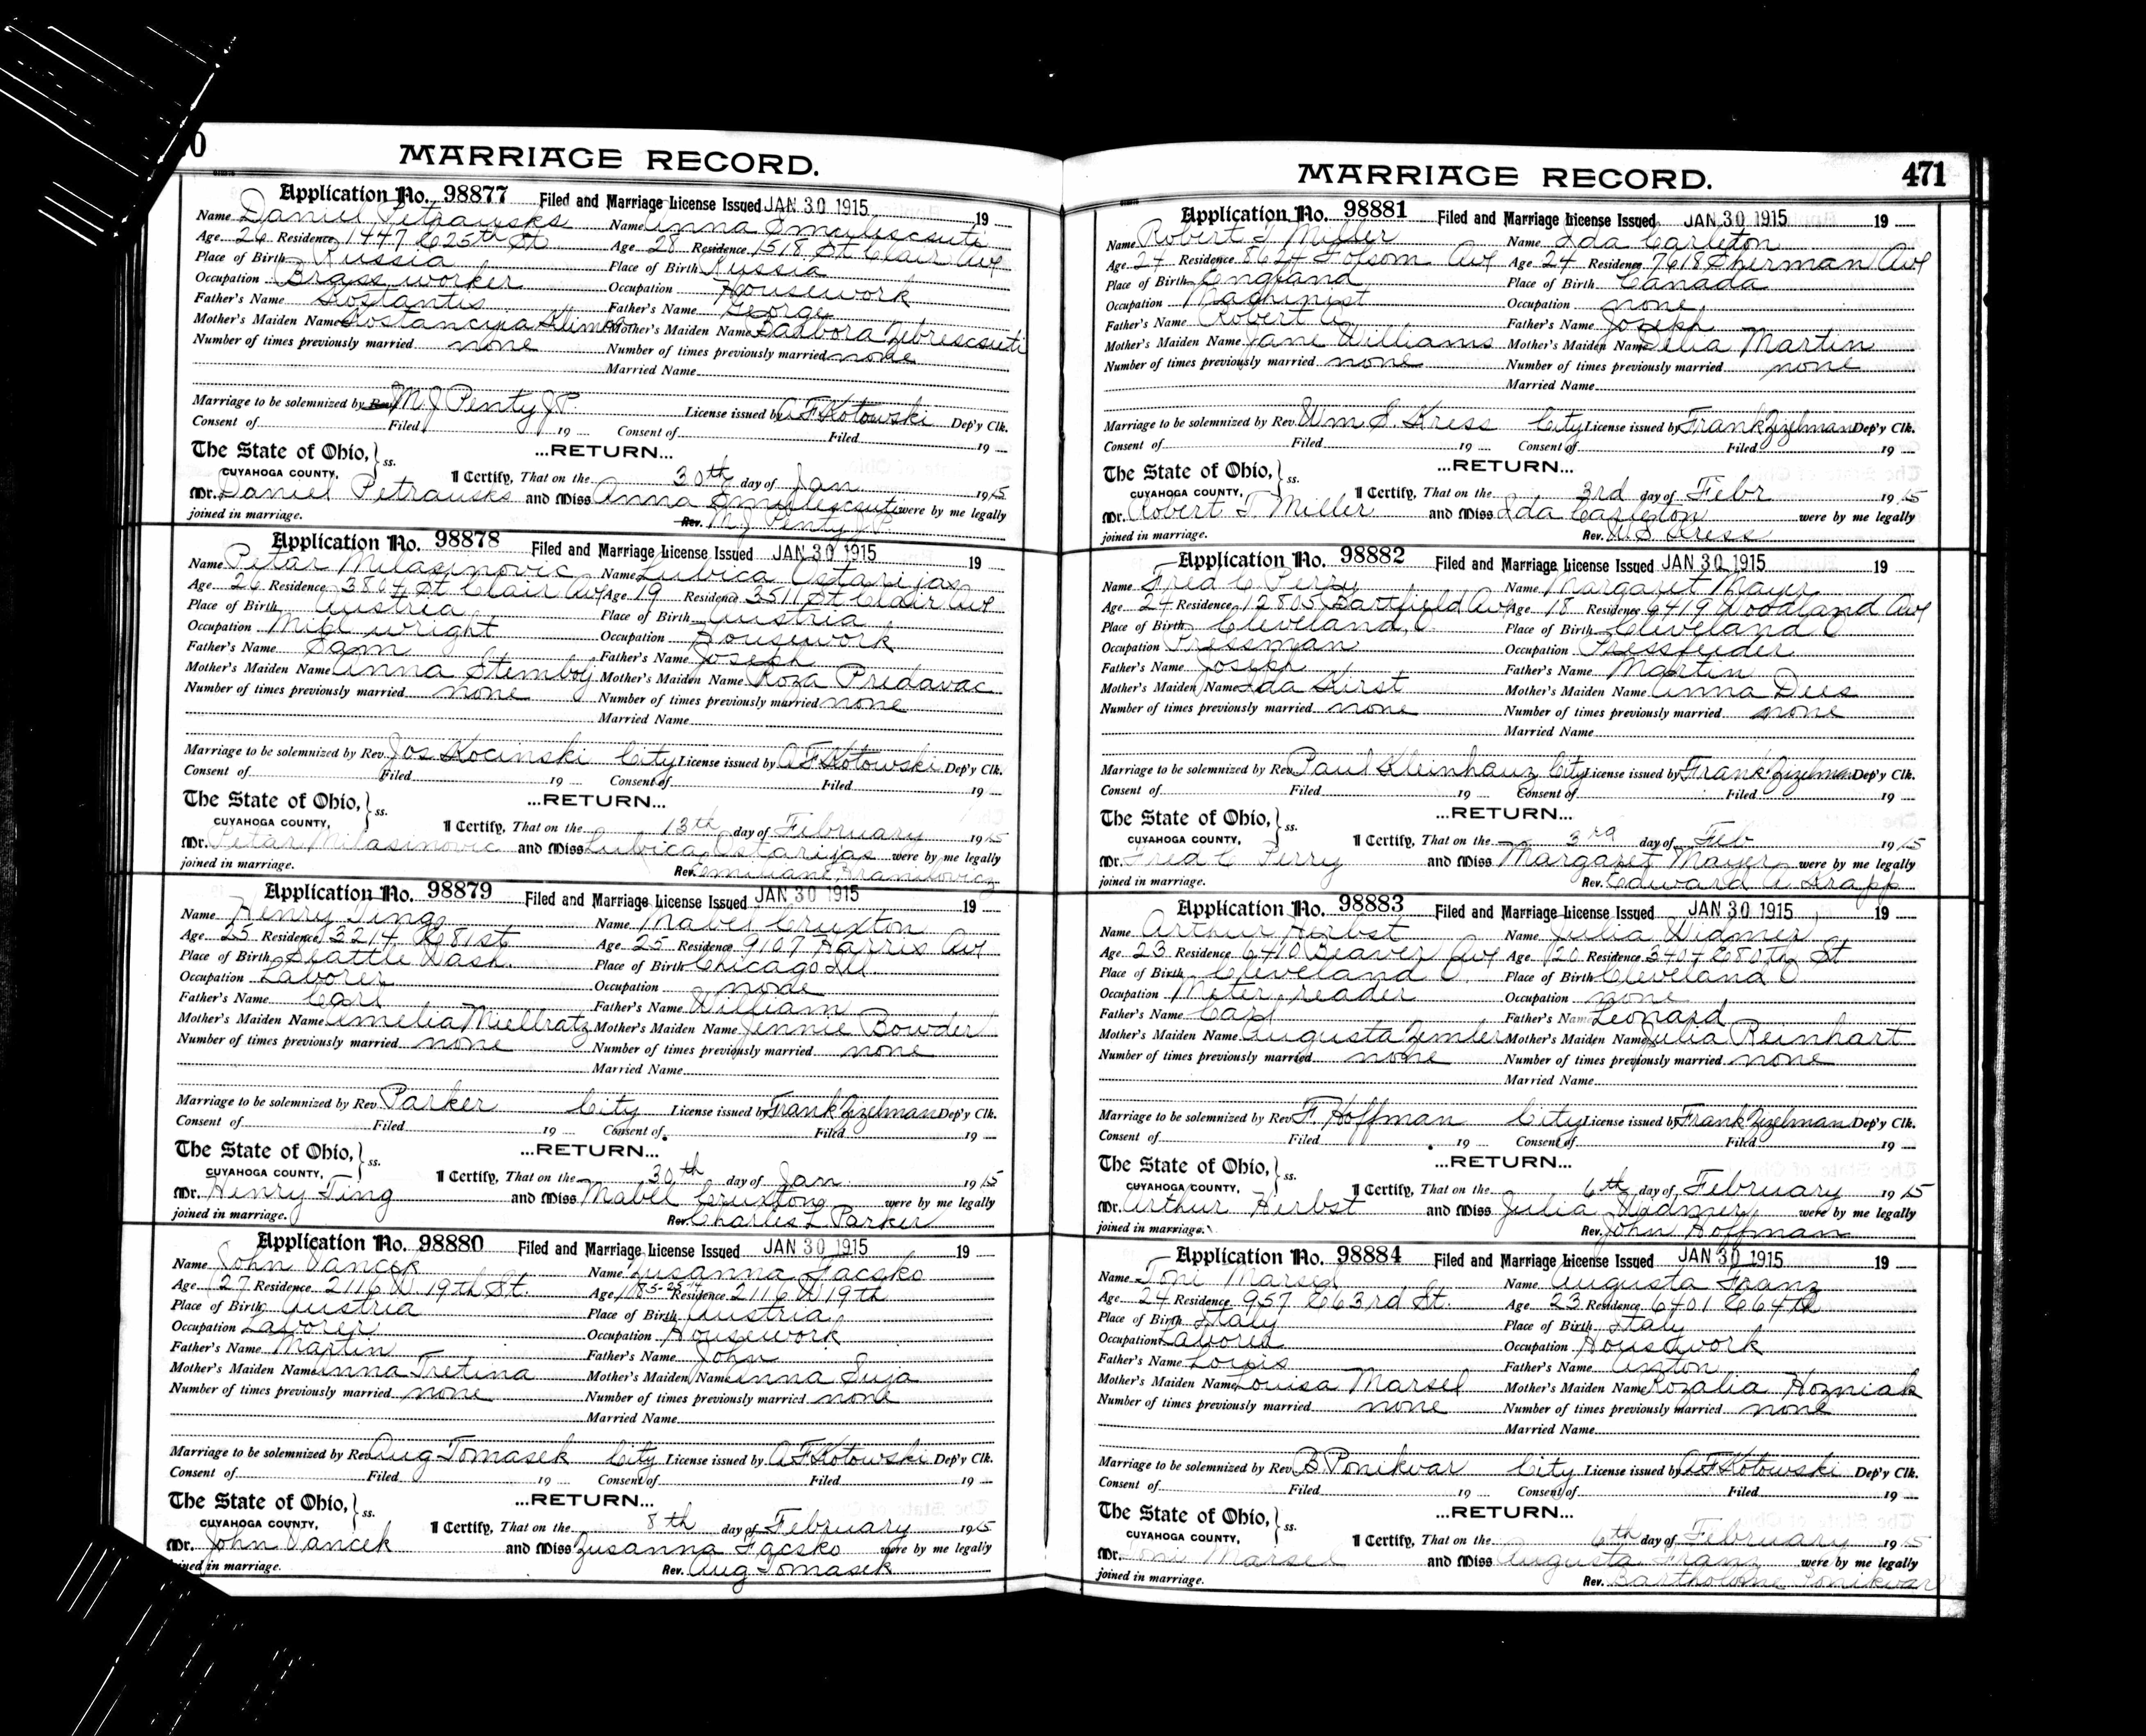 0
MARRIAGE RECORD.
Application No. 98877 Filed and Marriage License Issued JAN 30 1915 19
Name Daniel Petrausks Name Anna
Age 26 Residence 1447 E 25th St Age 28 Residence 1518 St Clair Ave
Place of Birth Russia Place of Birth Russia
Occupation Brass worker Occupation Housework
Father's Name Kostantis Father's Name George
Mother's Maiden Name Mother's Maiden Name Barbora
Number of times previously married none Number of times previously married none
Married Name
Marriage to be solemnized by Rev M J Penty J.P. License issued by A F Kotowski Dep'y Clk.
Consent of Filed 19 Consent of Filed 19
The State of Ohio, } ss. ...RETURN...
CUYAHOGA COUNTY, I Certify, That on the 30th day of Jan 1915
Mr. Daniel Petrausks and Miss Anna were by me legally
joined in marriage. Rev. M. J. Penty J.P.
Application No. 98878 Filed and Marriage License Issued JAN 30 1915 19
Name Petar Milasinovic Name Lubica Ostarijas
Age 26 Residence 3804 St Clair Ave Age 19 Residence 3511 St Clair Ave
Place of Birth Austria Place of Birth Austria
Occupation Mill wright Occupation Housework
Father's Name Sam Father's Name Joseph
Mother's Maiden Name Anna Stemboj Mother's Maiden Name Roza Predavac
Number of times previously married none Number of times previously married none
Married Name
Marriage to be solemnized by Rev. Jos Kocinski City License issued by A F Kotowski Dep'y Clk.
Consent of Filed 19 Consent of Filed 19
The State of Ohio, } ss. ...RETURN...
CUYAHOGA COUNTY, I Certify, That on the 13th day of February 1915
Mr. Petar Milasinovic and Miss Lubica Ostarijas were by me legally
joined in marriage. Rev.
Application No. 98879 Filed and Marriage License Issued JAN 30 1915 19
Name Henry Ting Name Mabel Cruxton
Age 25 Residence 3214 E 81st Age 25 Residence 9107 Harris Ave
Place of Birth Seattle Wash. Place of Birth Chicago Ill.
Occupation Laborer Occupation none
Father's Name Carl Father's Name William
Mother's Maiden Name Amelia Miellratz Mother's Maiden Name Jennie Bowder
Number of times previously married none Number of times previously married none
Married Name
Marriage to be solemnized by Rev Parker City License issued by Frank Zizelman Dep'y Clk.
Consent of Filed 19 Consent of Filed 19
The State of Ohio, } ss. ...RETURN...
CUYAHOGA COUNTY, I Certify, That on the 30th day of Jan. 1915
Mr. Henry Ting and Miss Mabel Cruxton were by me legally
joined in marriage. Rev. Charles L Parker
Application No. 98880 Filed and Marriage License Issued JAN 30 1915 19
Name John Vancek Name Zusanna Facsko
Age 27 Residence 2116 W 19th St. Age 18 Residence 2116 W 19th
Place of Birth Austria Place of Birth Austria
Occupation Laborer Occupation Housework
Father's Name Martin Father's Name John
Mother's Maiden Name Anna Tretina Mother's Maiden Name Anna Suja
Number of times previously married none Number of times previously married none
Married Name
Marriage to be solemnized by Rev Aug Tomasek City License issued by A F Kotowski Dep'y Clk.
Consent of Filed 19 Consent of Filed 19
The State of Ohio, } ss. ...RETURN...
CUYAHOGA COUNTY, I Certify, That on the 8th day of February 1915
Mr. John Vancek and Miss Zusanna Facsko were by me legally
joined in marriage. Rev. Aug Tomasek
471
MARRIAGE RECORD.
Application No. 98881 Filed and Marriage License Issued JAN 30 1915 19
Name Robert T Miller Name Ida Carleton
Age 27 Residence 8624 Folsom Ave Age 24 Residence 7618 Sherman Ave
Place of Birth England Place of Birth Canada
Occupation Machinist Occupation none
Father's Name Robert A. Father's Name Joseph
Mother's Maiden Name Jane Williams Mother's Maiden Name Delia Martin
Number of times previously married none Number of times previously married none
Married Name
Marriage to be solemnized by Rev. Wm S. Kress City License issued by Frank Zizelman Dep'y Clk.
Consent of Filed 19 Consent of Filed 19
The State of Ohio, } ss. ...RETURN...
CUYAHOGA COUNTY, I Certify, That on the 3rd day of Febr 1915
Mr. Robert T. Miller and Miss Ida Carleton were by me legally
joined in marriage. Rev. W S Kress
Application No. 98882 Filed and Marriage License Issued JAN 30 1915 19
Name Fred C Perry Name Margaret Mayer
Age 24 Residence 12805 Bartfield Ave Age 18 Residence 6419 Woodland Ave
Place of Birth Cleveland, O Place of Birth Cleveland O
Occupation Pressman Occupation Pressfeeder
Father's Name Joseph Father's Name Martin
Mother's Maiden Name Ida Hirst Mother's Maiden Name Anna Dees
Number of times previously married none Number of times previously married none
Married Name
Marriage to be solemnized by Rev Paul Kleinhauz City License issued by Frank Zizelman Dep'y Clk.
Consent of Filed 19 Consent of Filed 19
The State of Ohio, } ss. ...RETURN...
CUYAHOGA COUNTY, I Certify, That on the 3rd day of Feb 1915
Mr. Fred C Perry and Miss Margaret Mayer were by me legally
joined in marriage. Rev. Edward A Krapp
Application No. 98883 Filed and Marriage License Issued JAN 30 1915 19
Name Arthur Herbst Name Julia Widmer
Age 23 Residence 6410 Beaver Ave Age 20 Residence 3404 E 80th St
Place of Birth Cleveland O. Place of Birth Cleveland O
Occupation Meter reader Occupation none
Father's Name Carl Father's Name Leonard
Mother's Maiden Name Augusta Zemler Mother's Maiden Name Julia Reinhart
Number of times previously married none Number of times previously married none
Married Name
Marriage to be solemnized by Rev F. Hoffman City License issued by Frank Zizelman Dep'y Clk.
Consent of Filed 19 Consent of Filed 19
The State of Ohio, } ss. ...RETURN...
CUYAHOGA COUNTY, I Certify, That on the 6th day of February 1915
Mr. Arthur Herbst and Miss Julia Widmer were by me legally
joined in marriage. Rev. John Hoffman
Application No. 98884 Filed and Marriage License Issued JAN 30 1915 19
Name Toni Marsel Name Augusta Franz
Age 24 Residence 957 E 63rd St. Age 23 Residence 6401 E 64th
Place of Birth Italy Place of Birth Italy
Occupation Laborer Occupation Housework
Father's Name Louis Father's Name Anton
Mother's Maiden Name Louisa Marsel Mother's Maiden Name Rozalia Hozniak
Number of times previously married none Number of times previously married none
Married Name
Marriage to be solemnized by Rev B. Ponikvar City License issued by A F Kotowski Dep'y Clk.
Consent of Filed 19 Consent of Filed 19
The State of Ohio, } ss. ...RETURN...
CUYAHOGA COUNTY, I Certify, That on the 6th day of February 1915
Mr. Toni Marsel and Miss Augusta Franz were by me legally
joined in marriage. Rev. Bartholome Ponikvar